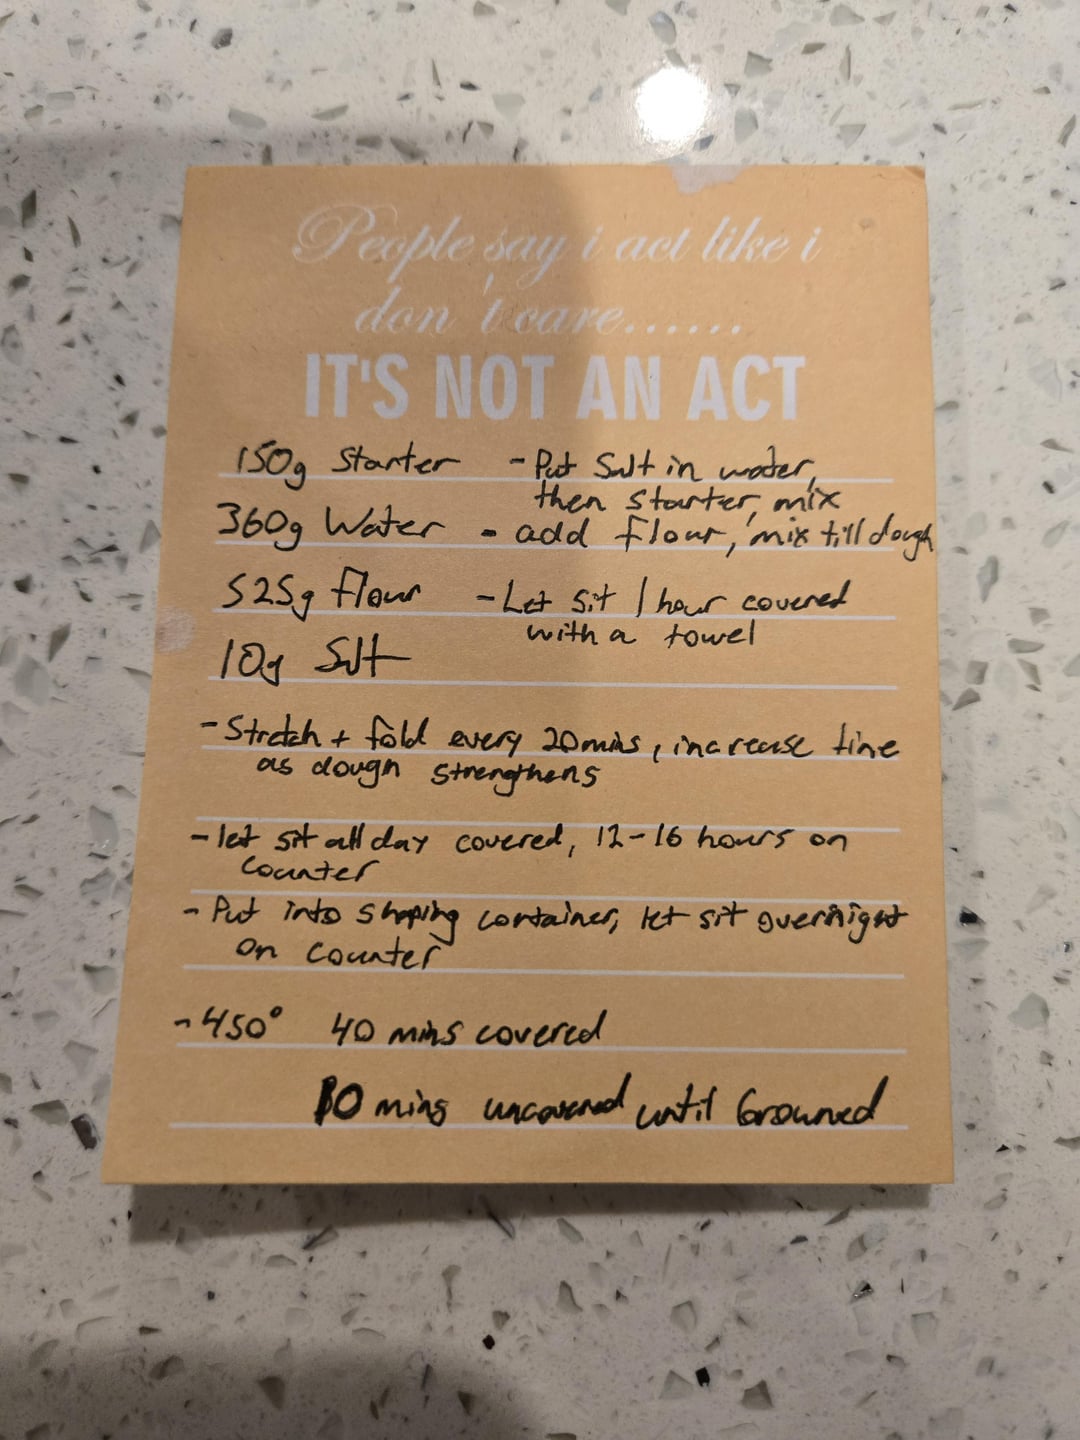 People say i act like i
don't care......
IT'S NOT AN ACT
150g Starter - Put Salt in water,
then starter, mix
360g Water - add flour, mix till dough
525g flour - Let sit 1 hour covered
with a towel
10g Salt
- Stretch + fold every 20mins, increase time
as dough strengthens
- let sit all day covered, 12-16 hours on
counter
- Put into shaping container, let sit overnight
on counter
- 450° 40 mins covered
10 mins uncovered until browned